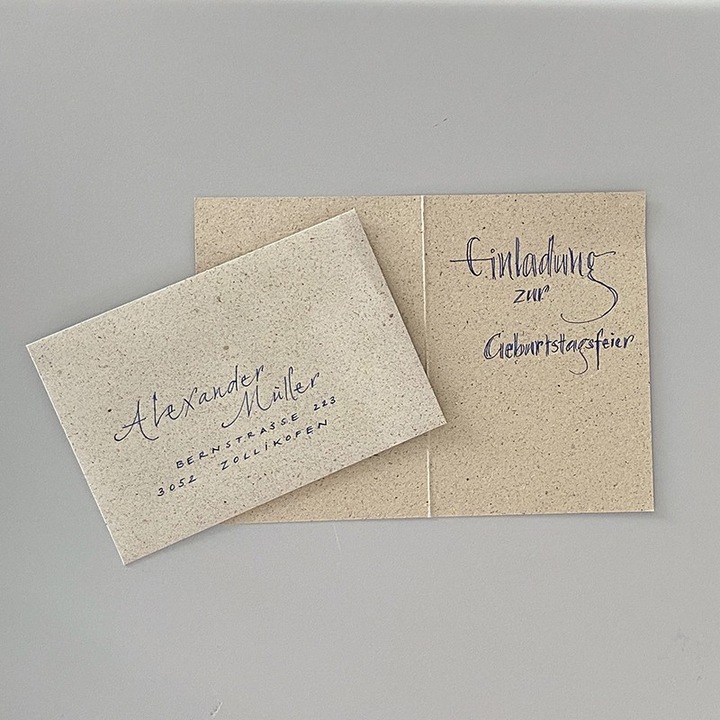 Alexander
Müller
BERNSTRASSE 223
3052 ZOLLIKOFEN
Einladung
zur
Geburtstagsfeier